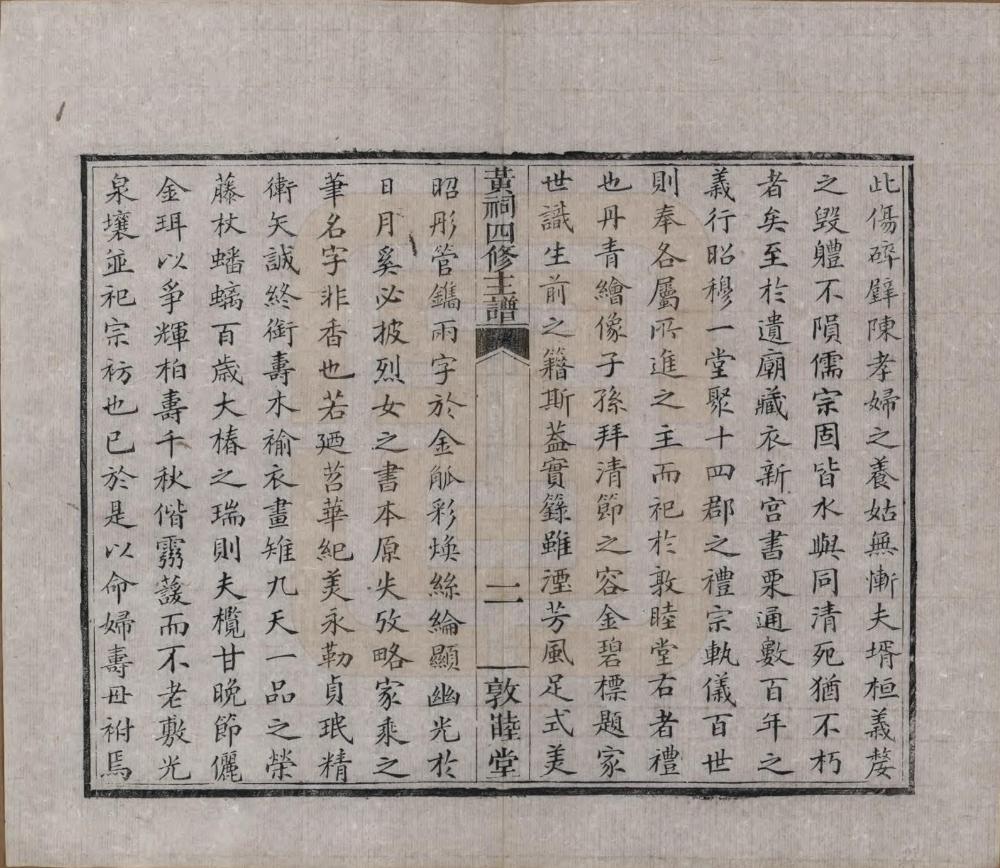 此傷碎璧陳孝婦之養姑無慚夫壻桓義嫠
之毀軆不隕儒宗固皆水與同清死猶不朽
者矣至於遺廟藏衣新宫書栗通數百年之
義行昭穆一堂聚十四郡之禮宗軌儀百世
則奉各屬所進之主而祀於敦睦堂右者禮
也丹青繪像子孫拜清節之容金碧標題家
世識生前之籍斯葢實錄雖湮芳風足式美
黃祠四修主譜
二
敦睦堂
昭彤管鐫兩字於金觚彩煥絲綸顯幽光於
日月奚必披烈女之書本原失攷略家乘之
筆名字非香也若廼苕華紀美永勒貞珉精
衛矢誠終銜壽木褕衣畫雉九天一品之榮
藤杖蟠螭百歲大椿之瑞則夫欖甘晚節儷
金珥以爭輝柏壽千秋偕霧蘐而不老敷光
泉壤並祀宗祊也已於是以命婦壽母祔焉